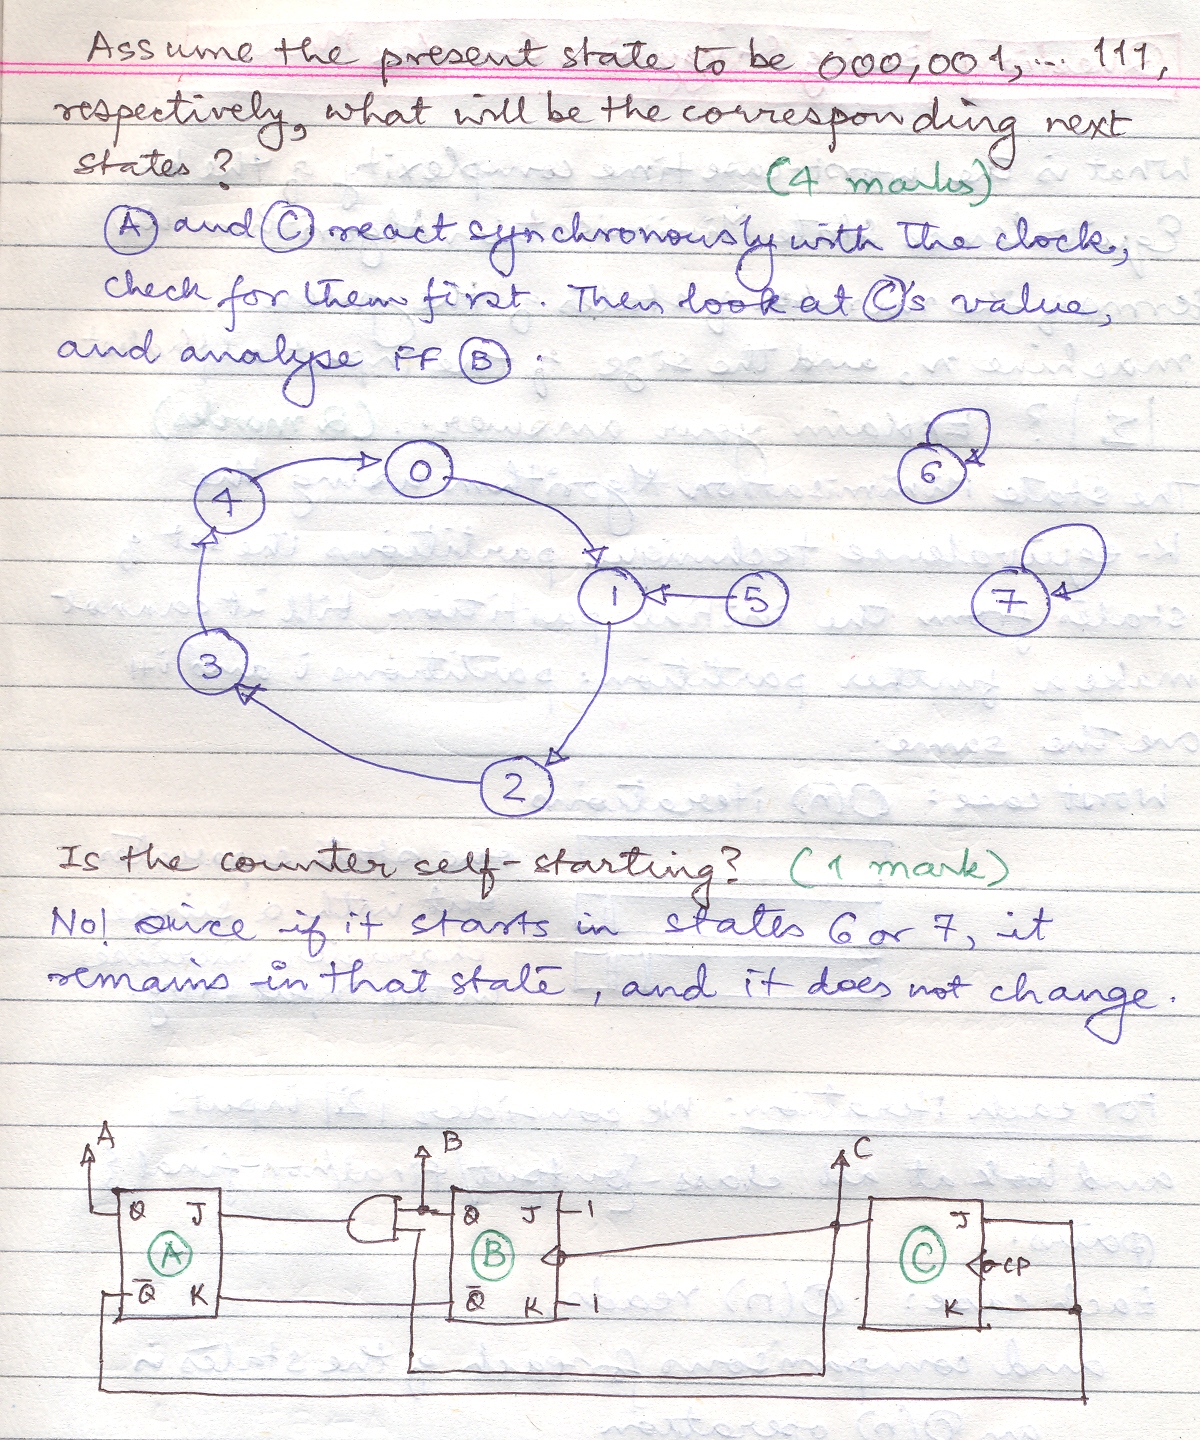 Assume the present state to be 000,001,... 111,
respectively, what will be the corresponding next
states?
(4 marks)
A and C react synchronously with the clock,
check for them first. Then look at C's value,
and analyse FF B.
0
4
6
1
5
7
3
2
Is the counter self-starting? (1 mark)
No! since if it starts in states 6 or 7, it
remains in that state, and it does not change.
A B C
Q J Q J 1 J
A B C CP
Q̅ K Q̅ K 1 K